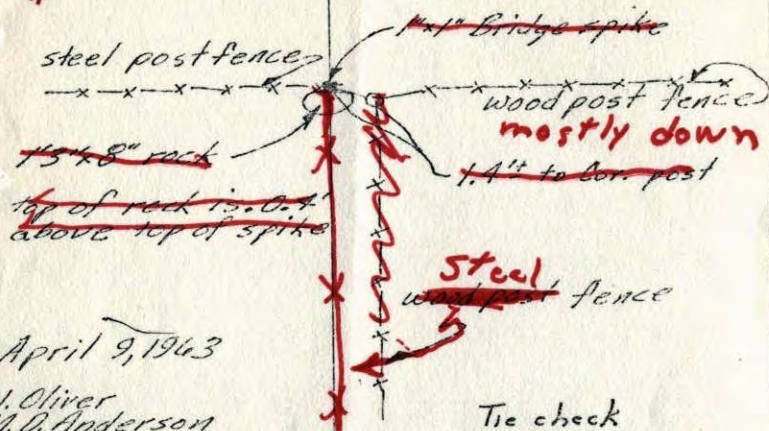 1"x1" Bridge spike
steel post fence
wood post fence
mostly down
1'5"x8" rock
1.4'± to Cor. post
top of rock is 0.4'
above top of spike
steel
wood post fence
April 9, 1963
J. Oliver
M.D. Anderson
Tie check